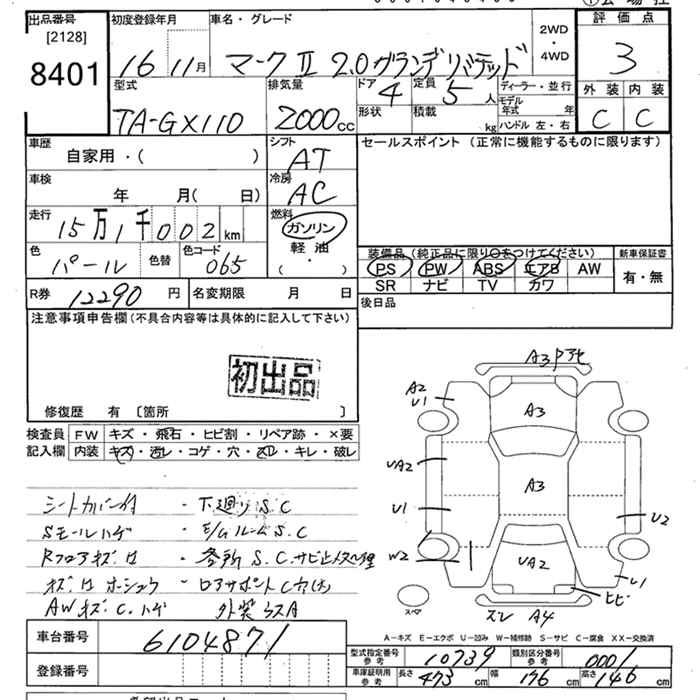 出品番号
[2128]
8401
初度登録年月
16 11月
車名・グレード
マークⅡ 2.0グランデリミテッド
2WD
・
4WD
評価点
3
外装 内装
C C
型式
TA-GX110
排気量
2000cc
ドア 4
形状
定員 5人
積載 kg
ディーラー・並行
モデル年式 年
ハンドル 左・右
車歴
自家用・( )
シフト
AT
車検
年 月( 日)
冷房
AC
走行
15万1千002km
燃料
ガソリン
軽油
( ・ )
色
パール
色替
色コード
065
R券 12290円
名変期限 月 日
セールスポイント (正常に機能するものに限ります)
装備品(純正品に限り○をつけてください)
PS PW ABS エアB AW
SR ナビ TV カワ
新車保証書
有・無
後日品
注意事項申告欄(不具合内容等は具体的に記入して下さい)
初出品
修復歴 有 〔箇所 〕
検査員記入欄
FW キズ・飛石・ヒビ割・リペア跡・×要
内装 キズ・汚レ・コゲ・穴・スレ・キレ・破レ
シートカバー付 ・下廻りS.C
Sモールハゲ ・E/GルームS.C
・各所S.C.サビ止メ処理
AWキズ.C.ハゲ
A3
A2
U1
A3
UA2
A3
U1
U2
W2
UA2
U1
ヒビ
スペア
スレ A4
A-キズ E-エクボ U-凹み W-補修跡 S-サビ C-腐食 XX-交換済
車台番号
6104871
登録番号
型式指定番号 参考 10739
類別区分番号 参考 0001
車庫証明用 参考 長さ 473cm 幅 176cm 高さ 146cm